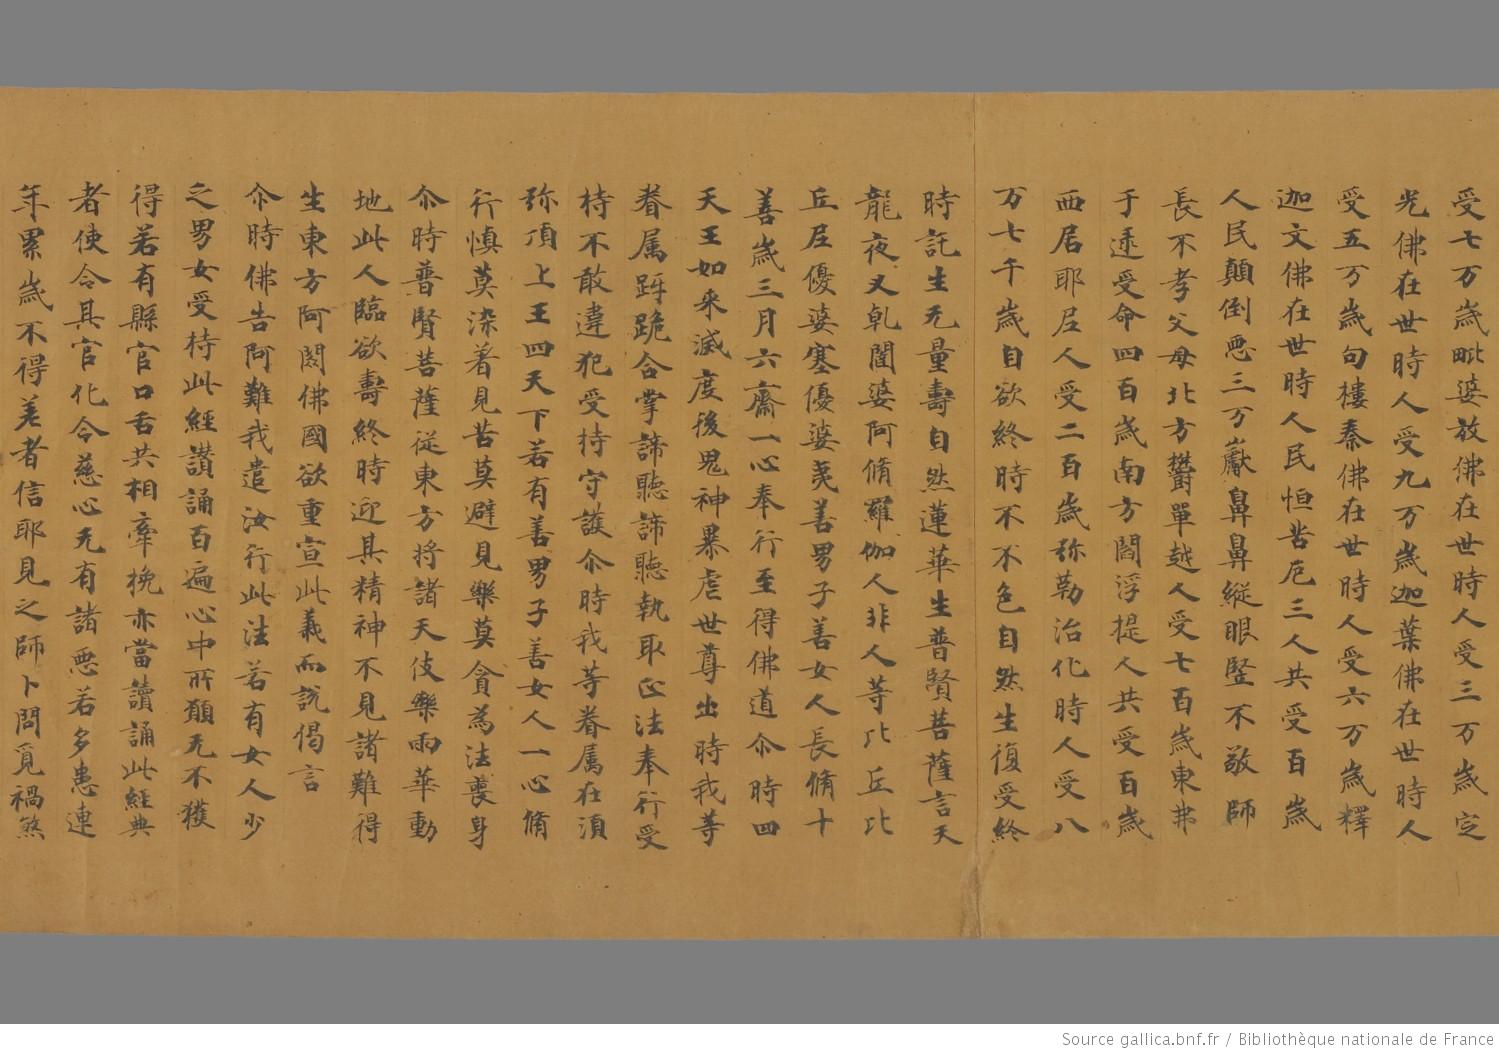 受七万歳毗婆放佛在世時人受三万歳㝎
光佛在世時人受九万歳迦葉佛在世時人
受五万歳句樓秦佛在世時人受六万歳釋
迦文佛在世時人民恒苦厄三人共受百歳
人民顛倒惡三万獻鼻鼻縱眼竪不敬師
長不孝父母北方欝單越人受七百歳東弗
于逮受命四百歳南方閻浮提人共受百歳
西居耶尼人受二百歳弥勒治化時人受八
万七千歳自欲終時不不色自然生復受終
時託生无量壽自然蓮華生普賢菩薩言天
龍夜叉乹闥婆阿脩羅伽人非人等比丘比
丘尼優婆塞優婆夷善男子善女人長脩十
善歳三月六齋一心奉行至得佛道尒時四
天王如来滅度後鬼神暴虐世尊出時我等
眷属跱跪合掌諦聽諦聽執取正法奉行受
持不敢違犯受持守護尒時我等眷属在須
弥頂上王四天下若有善男子善女人一心脩
行慎莫染著見苦莫避見樂莫貪為法喪身
尒時普賢菩薩従東方将諸天伎樂雨華動
地此人臨欲壽終時迎其精神不見諸難得
生東方阿閦佛國欲重宣此義而説偈言
尒時佛告阿難我遣汝行此法若有女人少
之男女受持此經讃誦百遍心中所願无不獲
得若有縣官口舌共相牽挽亦當讀誦此經典
者使令其官化令慈心无有諸惡若多患連
年累歳不得差者信耶見之師卜問覓禍煞
Source gallica.bnf.fr / Bibliothèque nationale de France